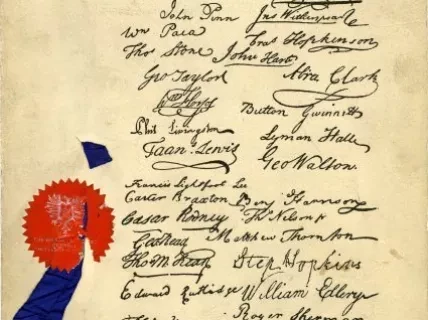 John Penn Jno Witherspoon
Wm Paca Fras Hopkinson
Thos Stone John Hart
Geo Taylor Abra Clark
Wm Floyd Button Gwinnett
Phil Livingston Lyman Hall
Fran Lewis Geo Walton
Francis Lightfoot Lee
Carter Braxton Benj Harrison
Caesar Rodney Ths Nelson jr
Geo Read Matthew Thornton
Tho M Kean Step Hopkins
Edward Rutledge William Ellery
Roger Sherman